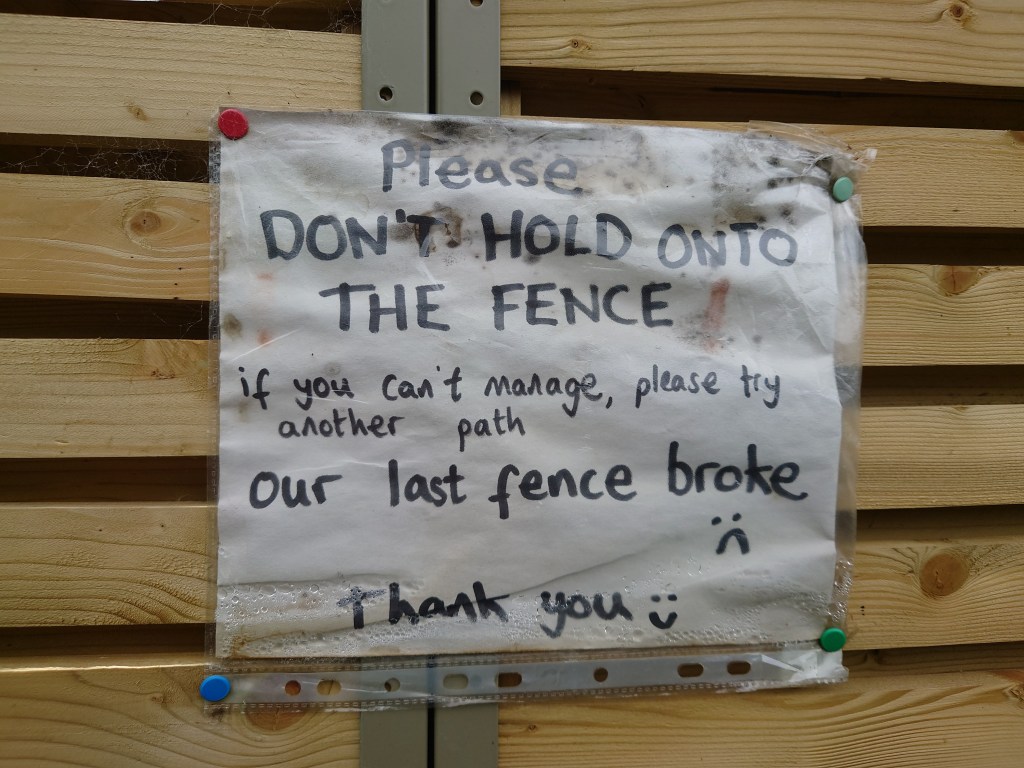 Please
DON'T HOLD ONTO
THE FENCE !
if you can't manage, please try
another path
our last fence broke
:(
Thank you :)